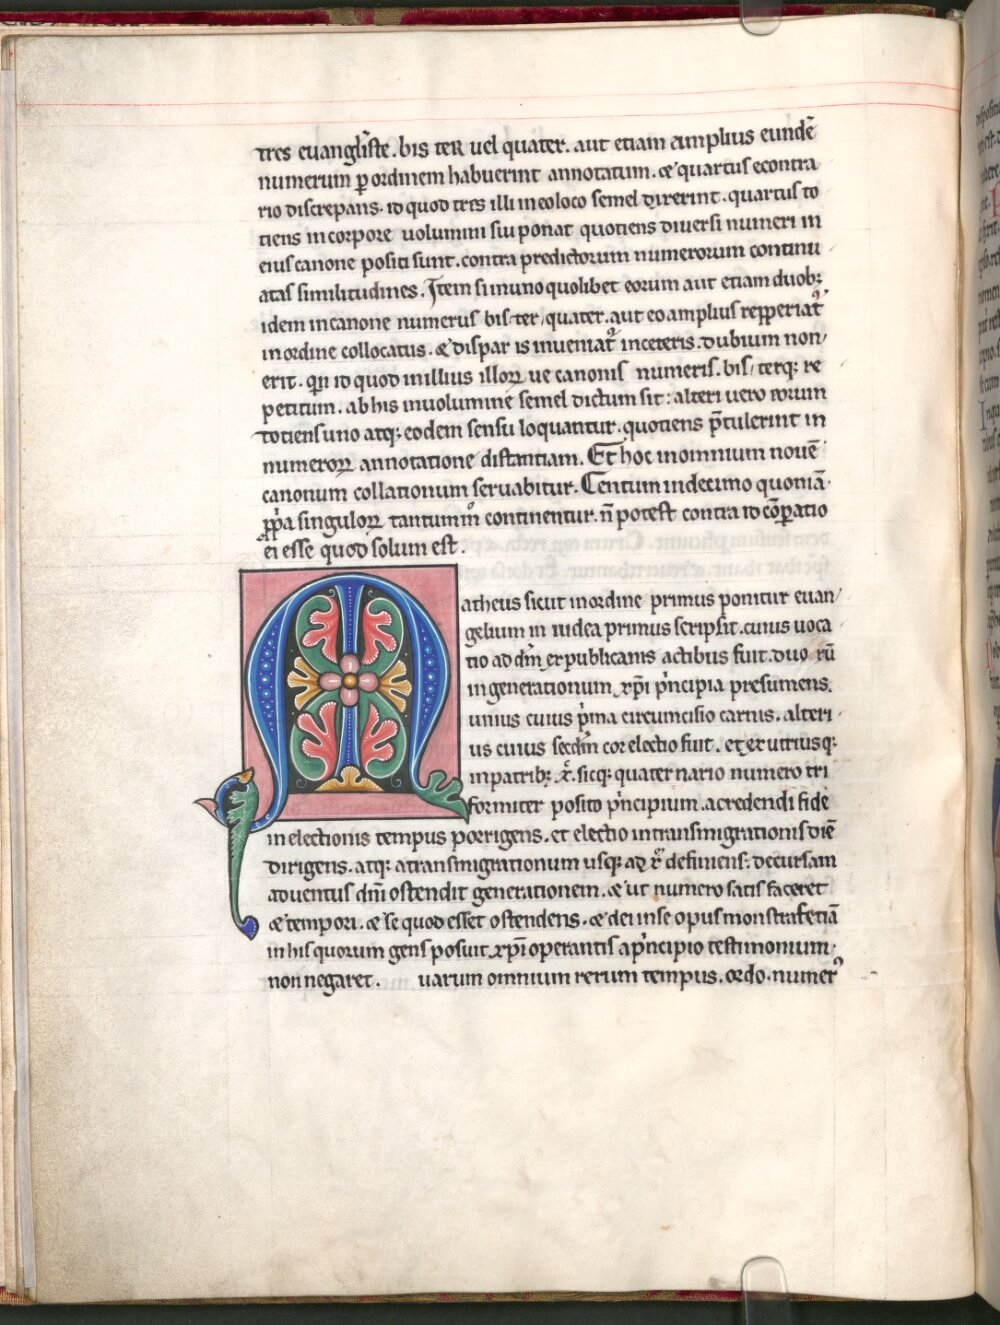 tres euangl̃iste. bis ter uel quater. aut etiam amplius eundē
numerum ꝑ ordinem habuerint annotatum. & quartus econtra
rio discrepans. id quod tres illi in eo loco semel dixerint. quartus to
tiens in corpore uolumini sui ponat quotiens diuersi numeri in
eius canone positi sunt. contra predictorum numerorum continu
atas similitudines. Item si in uno quolibet eorum aut etiam duobꝫ
idem in canone numerus bis ter, quater. aut eo amplius repperiat᷑
in ordine collocatus. & dispar is inueniat᷑ in ceteris. dubium non
erit. qn̄ id quod in illius illoꝝ ue canonis numeris. bis, terq; re
petitum. ab his in uolumine semel dictum sit: alteri uero eorum
totiens uno atq; eodem sensu loquantur. quotiens p̄tulerint in
numeroꝝ annotatione distantiam. Et hoc in omnium nouē
canonum collationum seruabitur. Centum in decimo quoniā
ꝓpͥa singuloꝝ tantummͦ continentur. n̄ potest contra id cōꝑatio
ei esse quod solum est.
Matheus sicut in ordine primus ponitur euan
gelium in iudea primus scripsit. cuius uoca
tio ad dm̄ ex publicanis actibus fuit. duo rū
in generationum xp̄i pͥncipia presumens.
unius cuius pͥma circumcisio carnis. alteri
us cuius secdm̄ cor electio fuit. et ex utriusq;
in patribꝫ xp̄c. sicq; quaternario numero tri
formiter posito pͥncipium. a credendi fide
in electionis tempus porrigens. et electio in transmigrationis diē
dirigens. atq; a transmigrationum usq; ad xp̄m definiens: decursam
aduentus dm̄i ostendit generationem. & ut numero satis faceret
& tempori. & se quod esset ostendens. & dei in se opus monstras etiā
in his quorum gens posuit xp̄i operantis a pͥncipio testimonium
non negaret. uarum omnium rerum tempus. ordo. numerꝰ